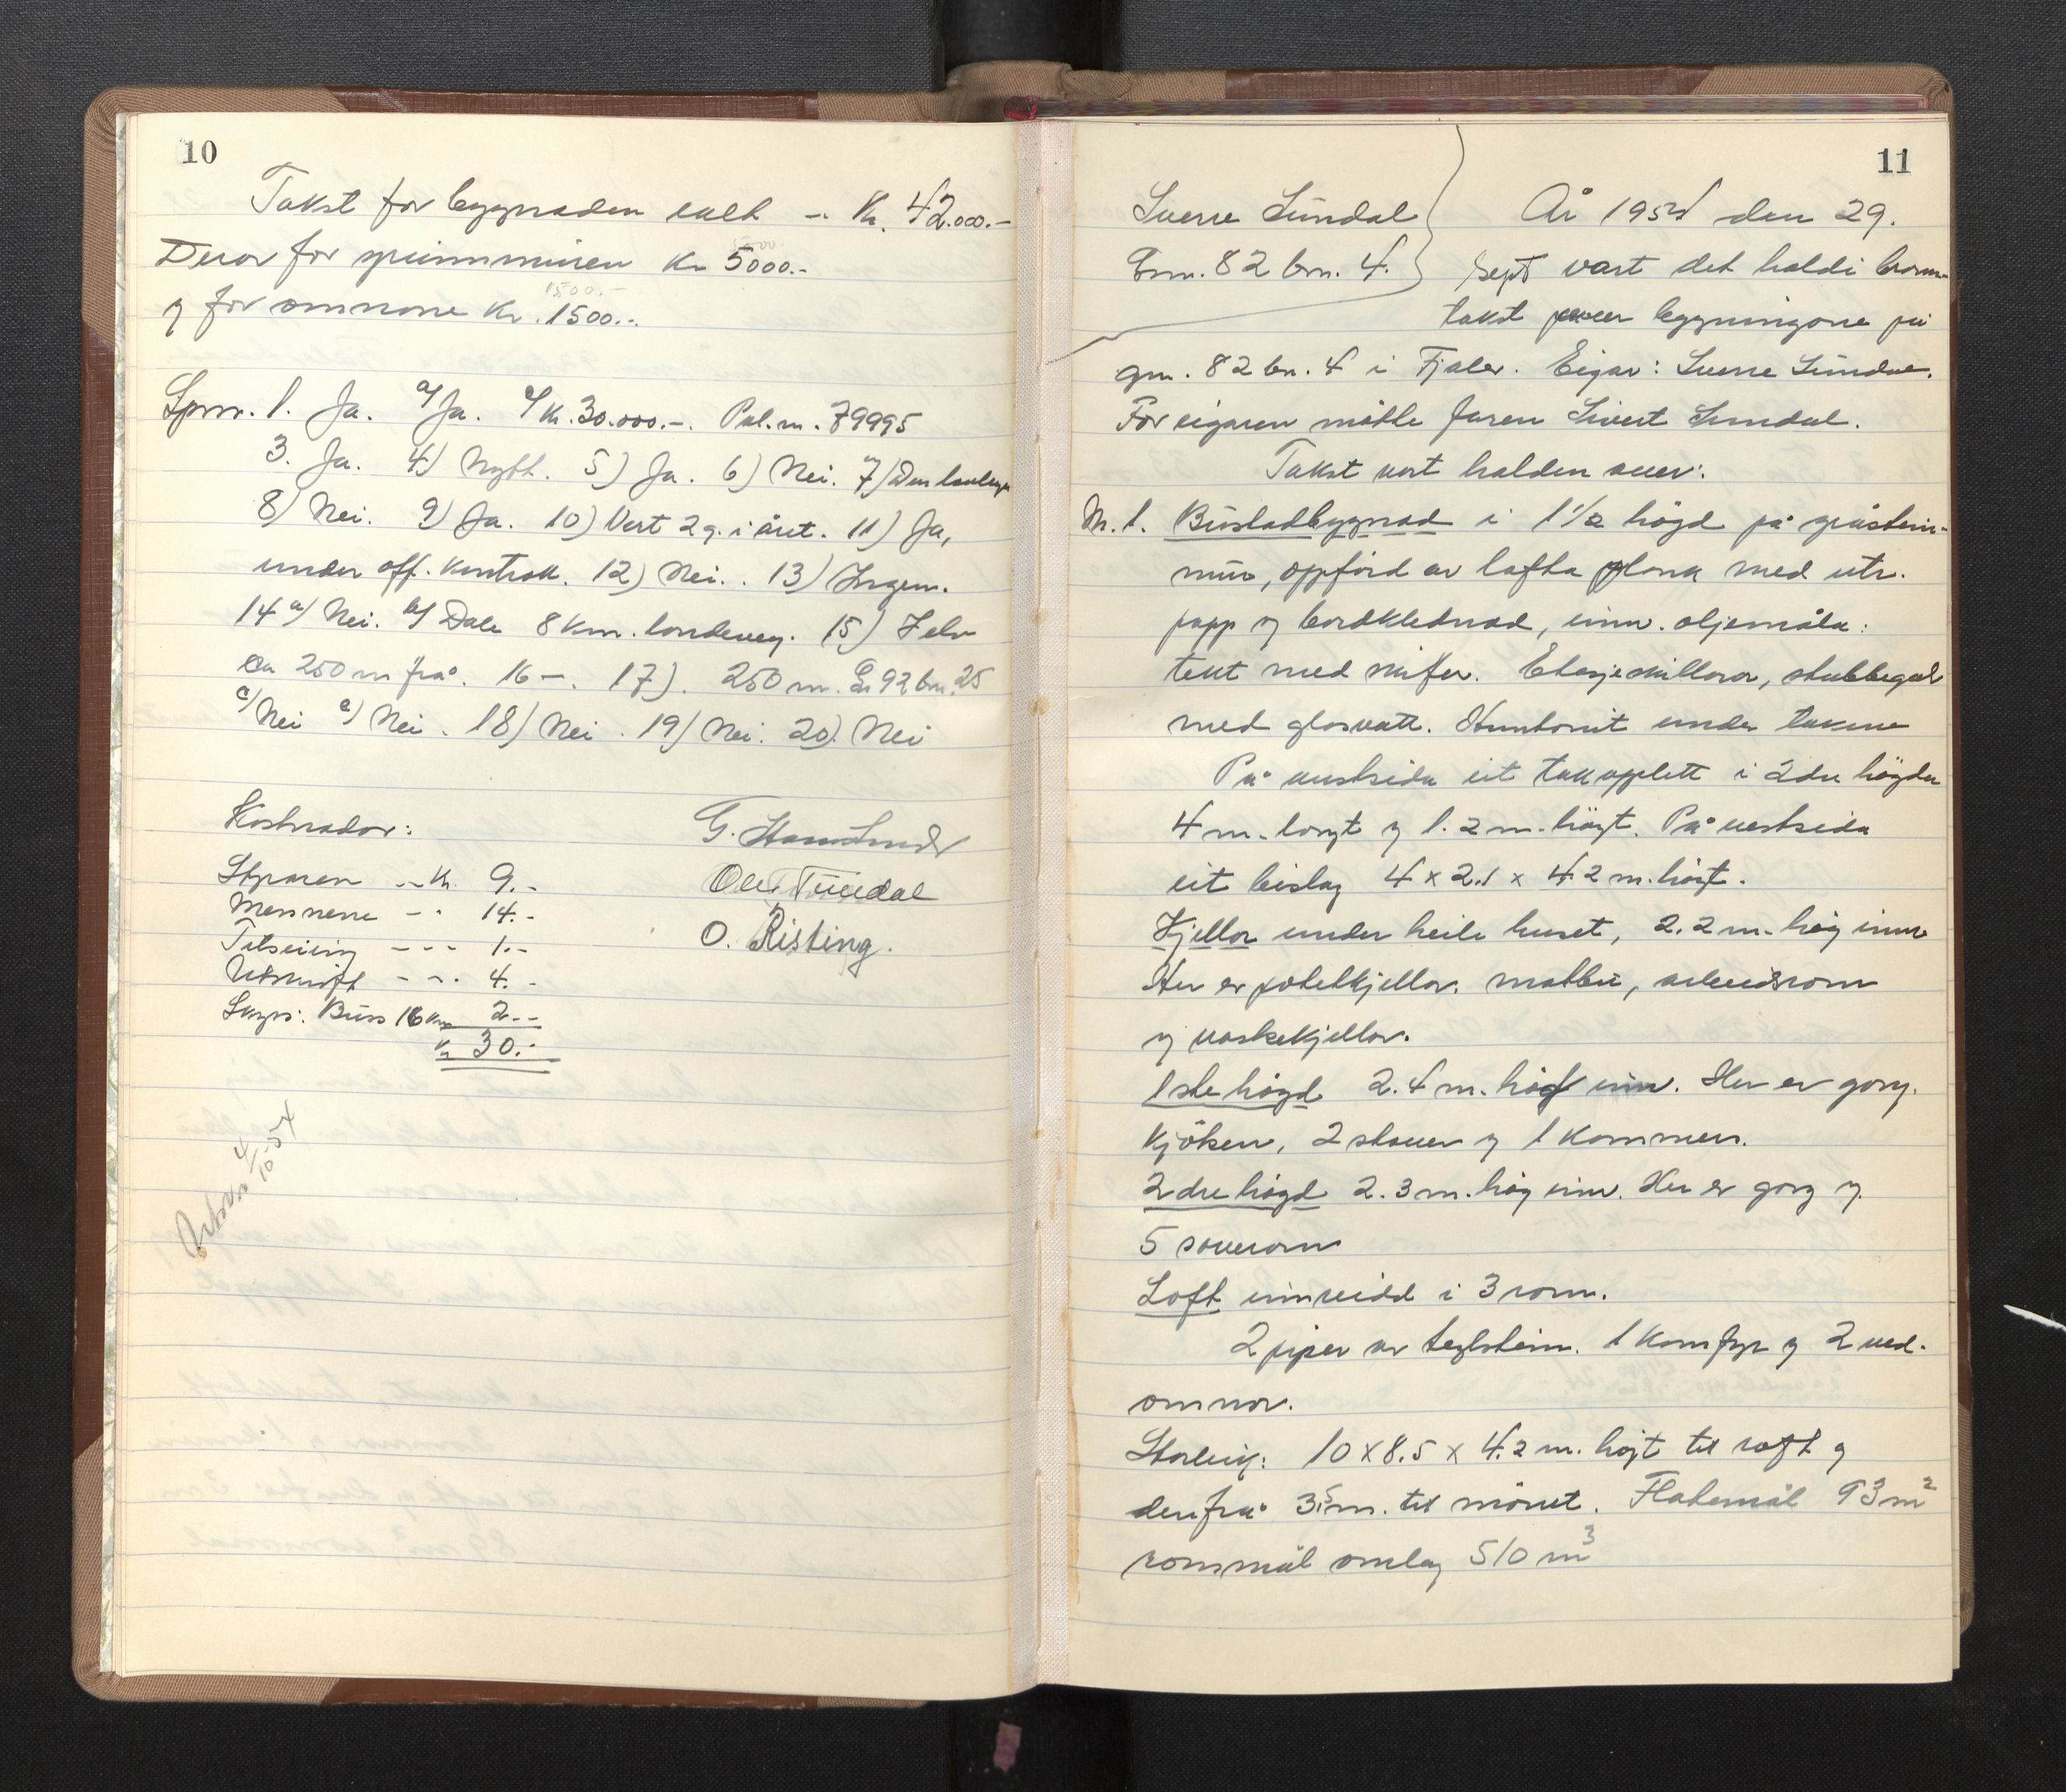 10
Takst for bygnaden ialt - Kr. 42.000.-
Derav for grunnmuren Kr 5000.-
5000.
1500.-
og for omnane Kr. 1500.-
Spm. 1. Ja. a/ Ja. c/ Kr. 30.000.-. Pol. nr. 79995
3. Ja. 4) Nytt. 5) Ja. 6) Nei. 7)
8) Nei. 9) Ja. 10) Vert 2 g. i året. 11) Ja,
under off. kontroll. 12) Nei. 13) Ingen.
14 a/ Nei. b/ Dale 8 km. landeveg. 15) Selv
ca 250 m frå. 16 -. 17). 250 m. G. 92 bn. 25
c/ Nei e/ Nei. 18) Nei. 19) Nei. 20) Nei
Kostnader:
Styraren -- Kr. 9.-
Mennene - - 14.-
Tilseiing - - - 1.-
Utskrift - - - 4.-
Skyss: Buss 16 km 2.-
Kr 30.-
Ole Tundal
O. Risting.
Utskr. 4/10-54
11
Sverre Sundal
Gnr. 82 bn. 4.
År 1954 den 29.
Sept vart det haldi brann-
takst over bygningane på
gnr. 82 bn. 4 i Fjaler. Eigar: Sverre Sundal.
For eigaren møtte faren Sivert Sundal.
Takst vart halden over:
Nr. 1. Bustadbygnad i 1 1/2 högd på gråstein-
mur, oppförd av lafta plank med utv.
papp og bordklednad, innv. oljemåla:
tekt med skifer. Etasjeskilloror, stubbegolv
med glasvatt. Huntonit under takene
På austsida eit takopplett i 2dre högda
4 m. langt og 1.2 m. högt. På vestsida
eit bislag 4 x 2.1 x 4.2 m. högt.
Kjellar under heile huset, 2.2 m. høg innv
Her er potetkjellar. matbu, arbeidsrom
og vaskekjellar.
1ste högd 2.4 m. høg innv. Her er gang.
kjøken, 2 stover og 1 kammers.
2dre högd 2.3 m. høg innv. Her er gang og
5 soverom
Loft innreidd i 3 rom.
2 piper av teglstein. 1 komfyr og 2 ved-
omnar.
Storleik: 10 x 8.5 x 4.2 m. højt til raft og
derifrå 3.5 m. til mønet. Flatemål 93 m²
rommål omlag 510 m³